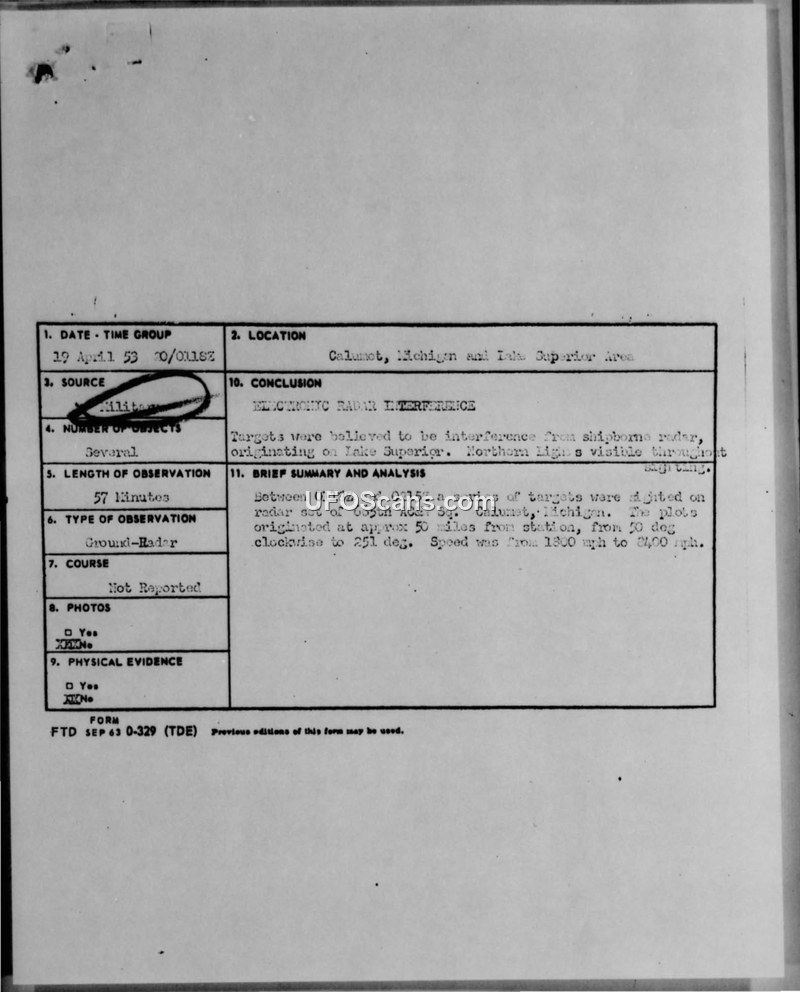 1. DATE - TIME GROUP
19 April 53 20/0118Z
2. LOCATION
Calumet, Michigan and Lake Superior Area
3. SOURCE
Military
10. CONCLUSION
ELECTRONIC RADAR INTERFERENCE
4. NUMBER OF OBJECTS
Several
Targets were believed to be interference from shipborne radar,
originating on Lake Superior. Northern Lights visible throughout
sighting.
5. LENGTH OF OBSERVATION
57 Minutes
11. BRIEF SUMMARY AND ANALYSIS
Between a series of targets were sighted on
radar set of Sq. Calumet, Michigan. The plots
originated at approx 50 miles from station, from deg
clockwise to 251 deg. Speed was from mph to mph.
UFOScans.com
6. TYPE OF OBSERVATION
Ground-Radar
7. COURSE
Not Reported
8. PHOTOS
□ Yes
XXXNo
9. PHYSICAL EVIDENCE
□ Yes
XXXNo
FORM
FTD SEP 63 0-329 (TDE) Previous editions of this form may be used.